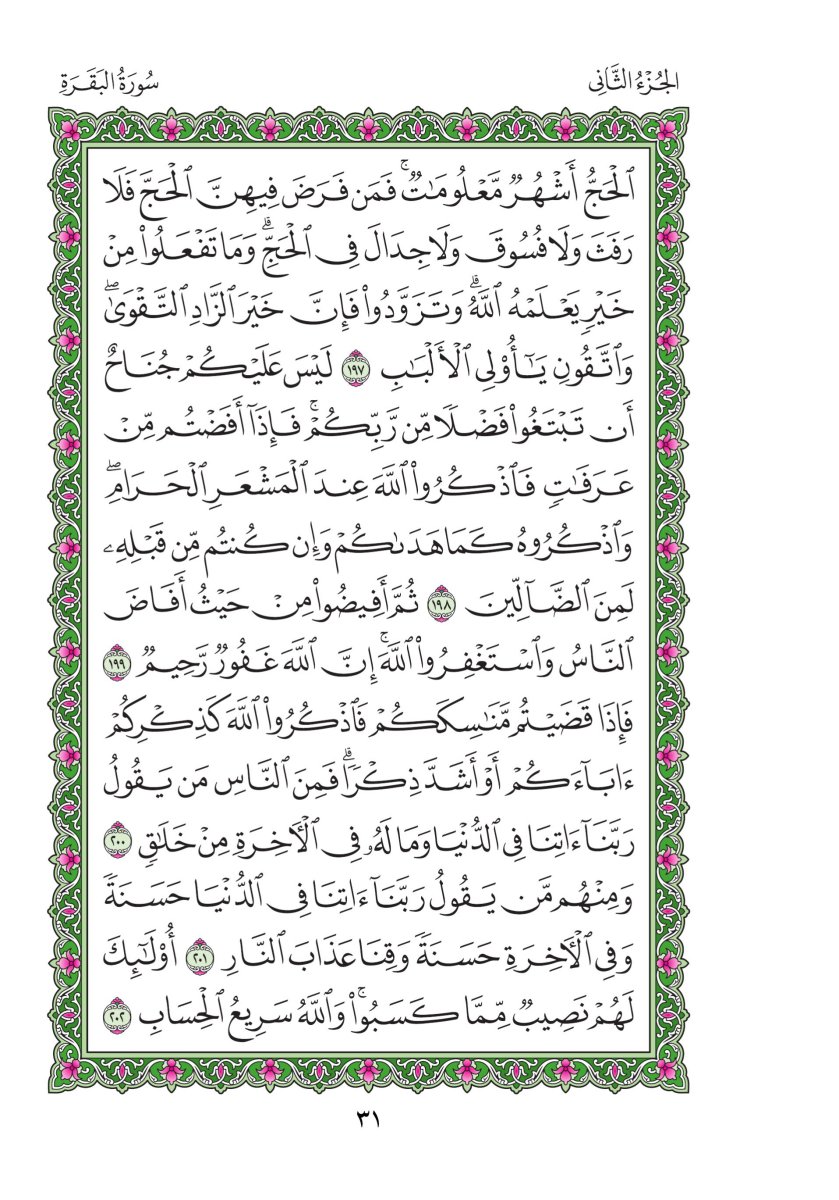 الجُزْءُ الثَّانِي
سُورَةُ البَقَرَةِ
ٱلْحَجُّ أَشْهُرٌ مَّعْلُومَٰتٌ ۚ فَمَن فَرَضَ فِيهِنَّ ٱلْحَجَّ فَلَا
رَفَثَ وَلَا فُسُوقَ وَلَا جِدَالَ فِى ٱلْحَجِّ ۗ وَمَا تَفْعَلُوا۟ مِنْ
خَيْرٍ يَعْلَمْهُ ٱللَّهُ ۗ وَتَزَوَّدُوا۟ فَإِنَّ خَيْرَ ٱلزَّادِ ٱلتَّقْوَىٰ ۖ
وَٱتَّقُونِ يَٰٓأُو۟لِى ٱلْأَلْبَٰبِ ١٩٧ لَيْسَ عَلَيْكُمْ جُنَاحٌ
أَن تَبْتَغُوا۟ فَضْلًا مِّن رَّبِّكُمْ ۚ فَإِذَآ أَفَضْتُم مِّنْ
عَرَفَٰتٍ فَٱذْكُرُوا۟ ٱللَّهَ عِندَ ٱلْمَشْعَرِ ٱلْحَرَامِ ۖ
وَٱذْكُرُوهُ كَمَا هَدَىٰكُمْ وَإِن كُنتُم مِّن قَبْلِهِۦ
لَمِنَ ٱلضَّآلِّينَ ١٩٨ ثُمَّ أَفِيضُوا۟ مِنْ حَيْثُ أَفَاضَ
ٱلنَّاسُ وَٱسْتَغْفِرُوا۟ ٱللَّهَ ۚ إِنَّ ٱللَّهَ غَفُورٌ رَّحِيمٌ ١٩٩
فَإِذَا قَضَيْتُم مَّنَٰسِكَكُمْ فَٱذْكُرُوا۟ ٱللَّهَ كَذِكْرِكُمْ
ءَابَآءَكُمْ أَوْ أَشَدَّ ذِكْرًا ۗ فَمِنَ ٱلنَّاسِ مَن يَقُولُ
رَبَّنَآ ءَاتِنَا فِى ٱلدُّنْيَا وَمَا لَهُۥ فِى ٱلْءَاخِرَةِ مِنْ خَلَٰقٍ ٢٠٠
وَمِنْهُم مَّن يَقُولُ رَبَّنَآ ءَاتِنَا فِى ٱلدُّنْيَا حَسَنَةً
وَفِى ٱلْءَاخِرَةِ حَسَنَةً وَقِنَا عَذَابَ ٱلنَّارِ ٢٠١ أُو۟لَٰٓئِكَ
لَهُمْ نَصِيبٌ مِّمَّا كَسَبُوا۟ ۚ وَٱللَّهُ سَرِيعُ ٱلْحِسَابِ ٢٠٢
٣١